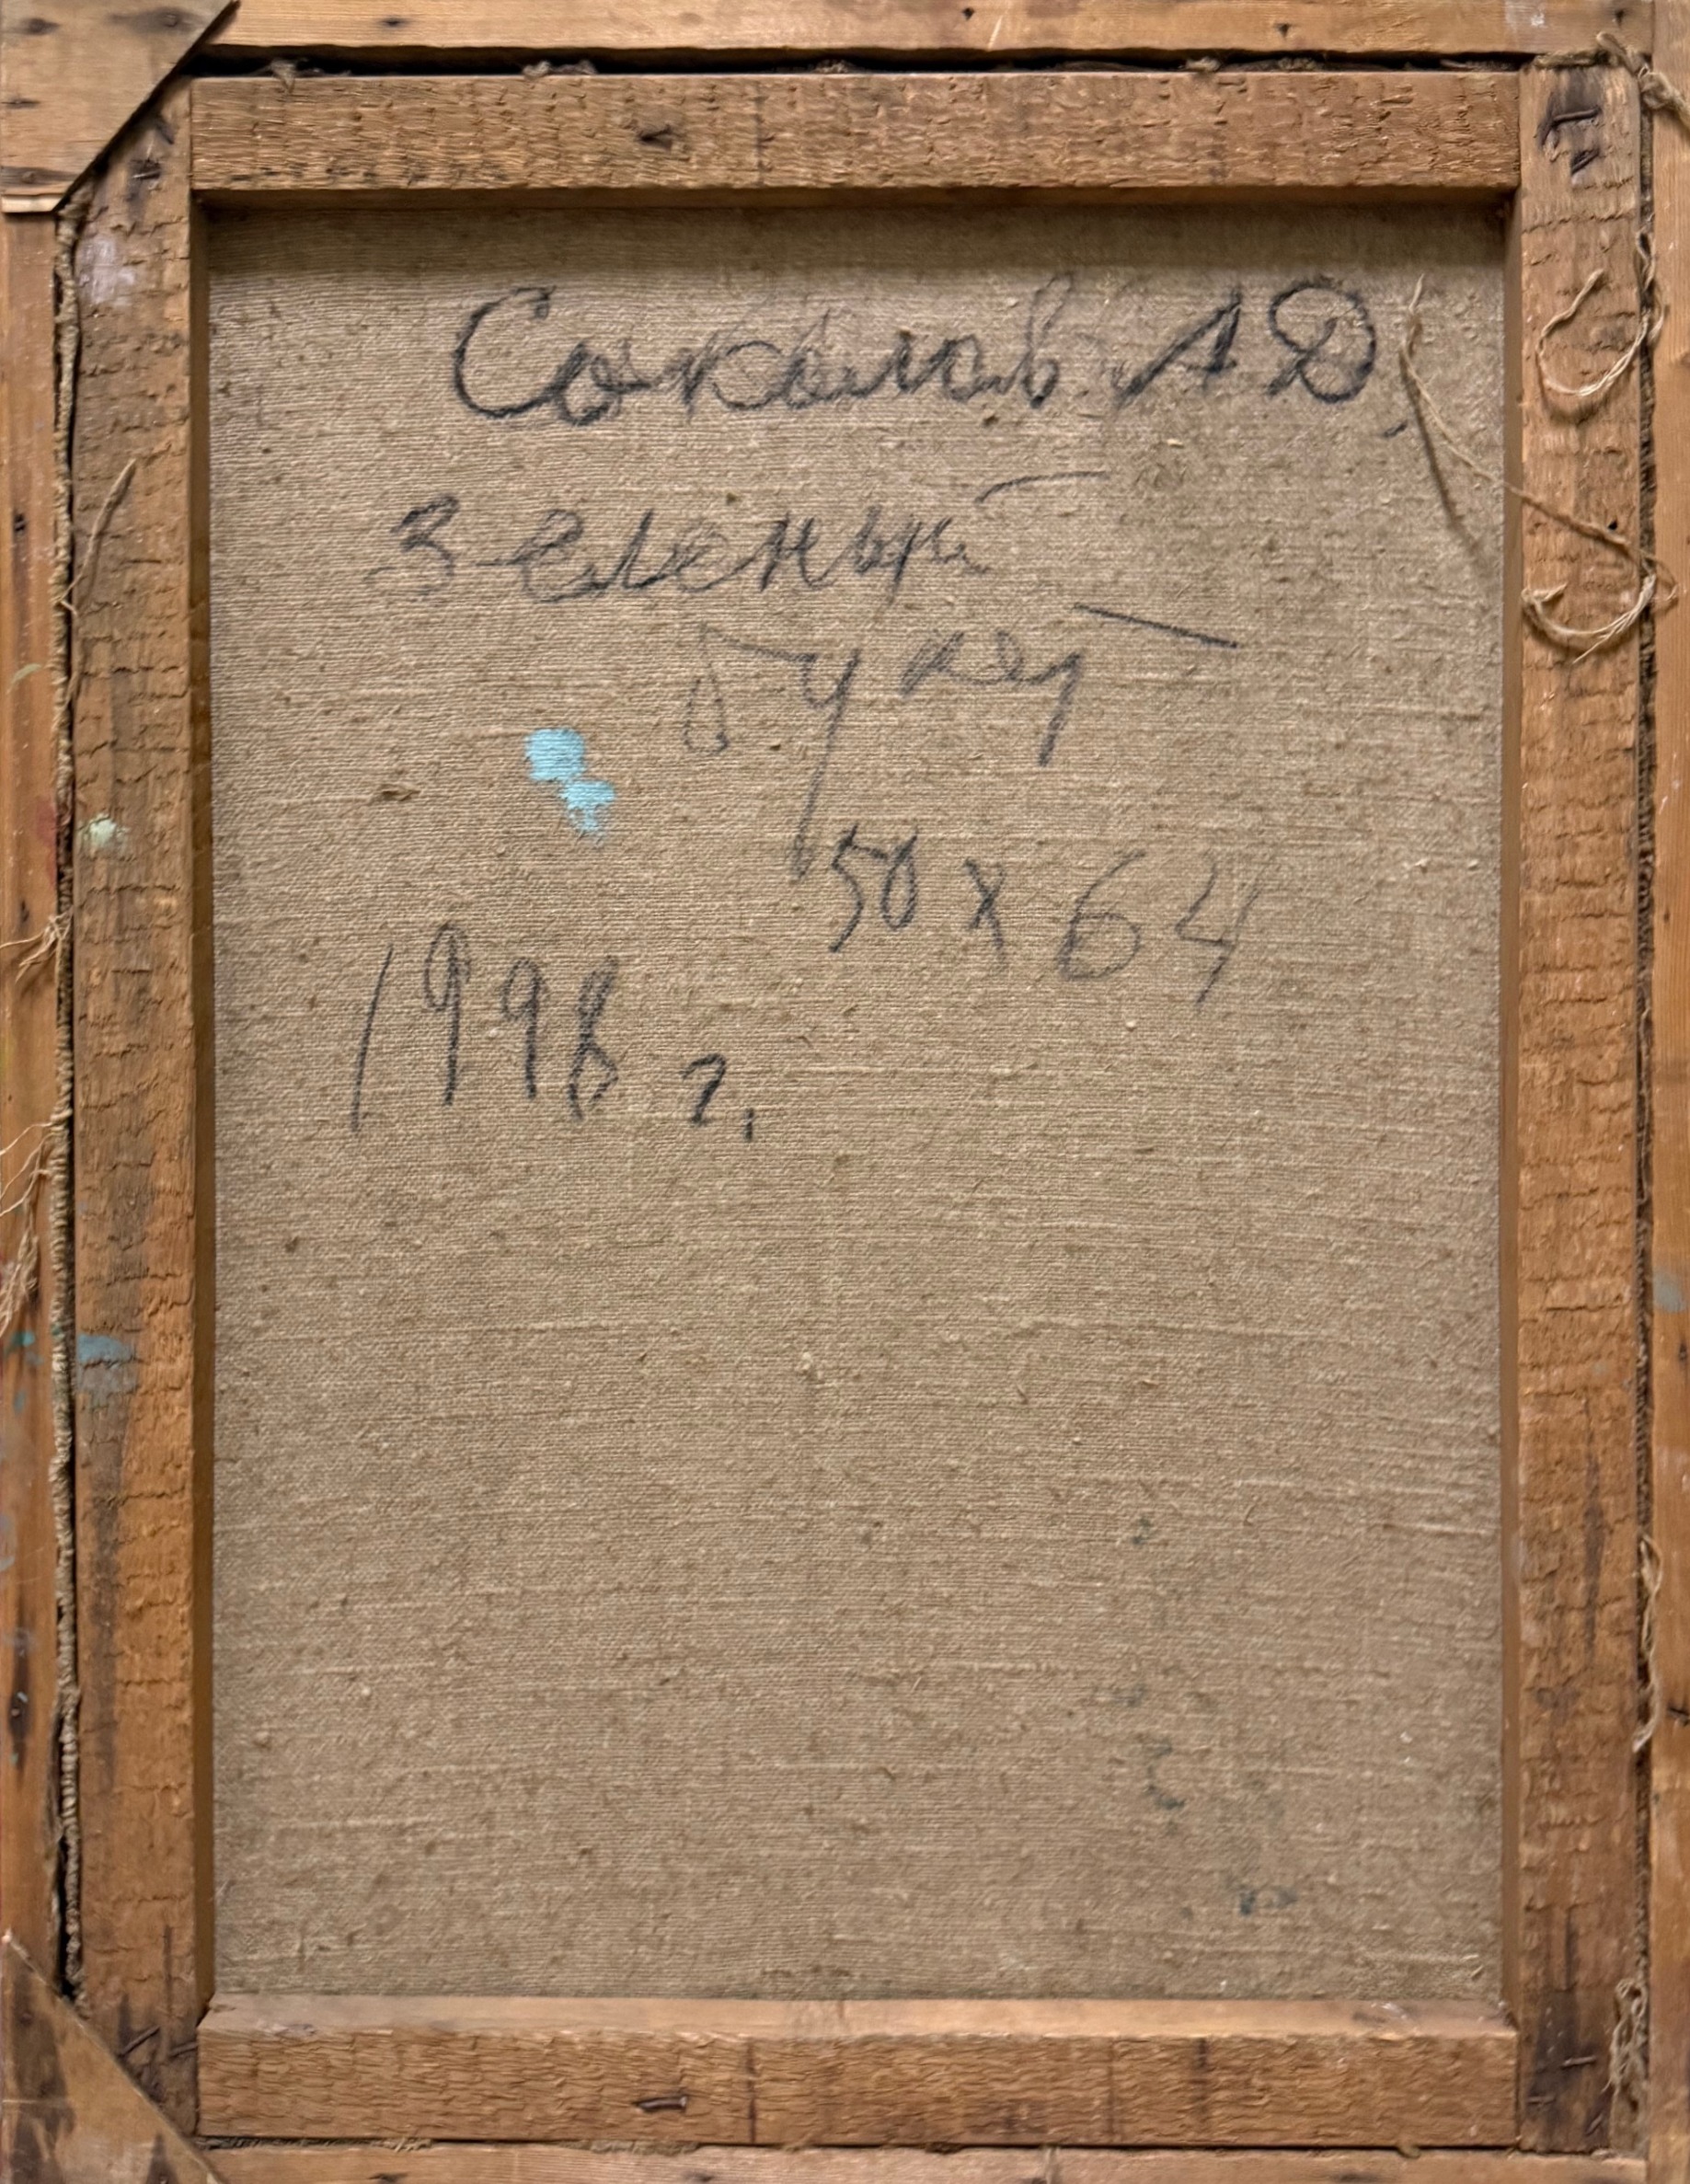 Соколов А Д,
Зеленый
букет
50 х 64
1998 г.